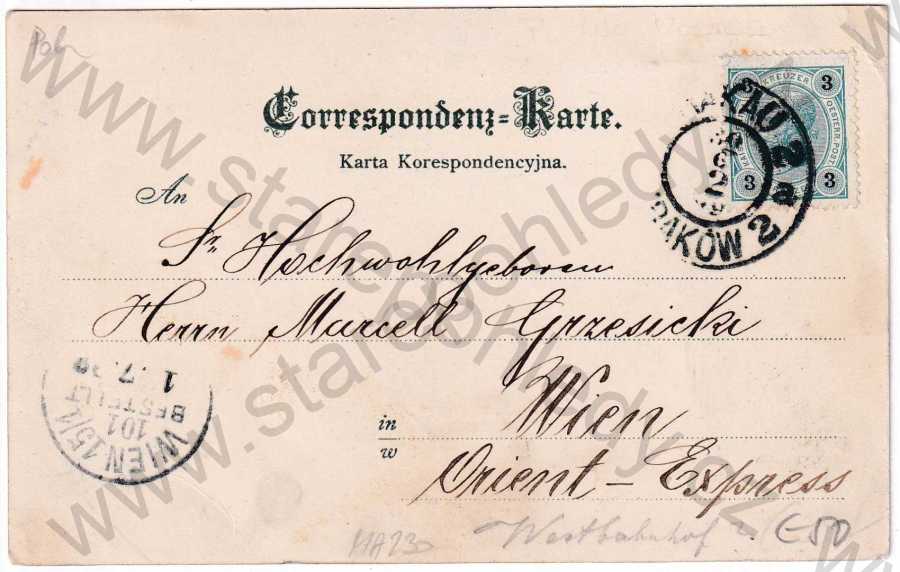 Correspondenz-Karte.
Karta Korespondencyjna.
An
Sr. Hochwohlgeboren
Herrn Marcell Grzesicki
in
w
Wien
Orient-Express
Westbahnhof
HA23
€50
3 KREUZER 3
KAIS. OESTERR. POST.
3 3
KRAKAU 2a
KRAKÓW 2
WIEN 15/1
101
BESTELLT
1.7.99
www.starepohledy.cz
www.starepohledy.cz